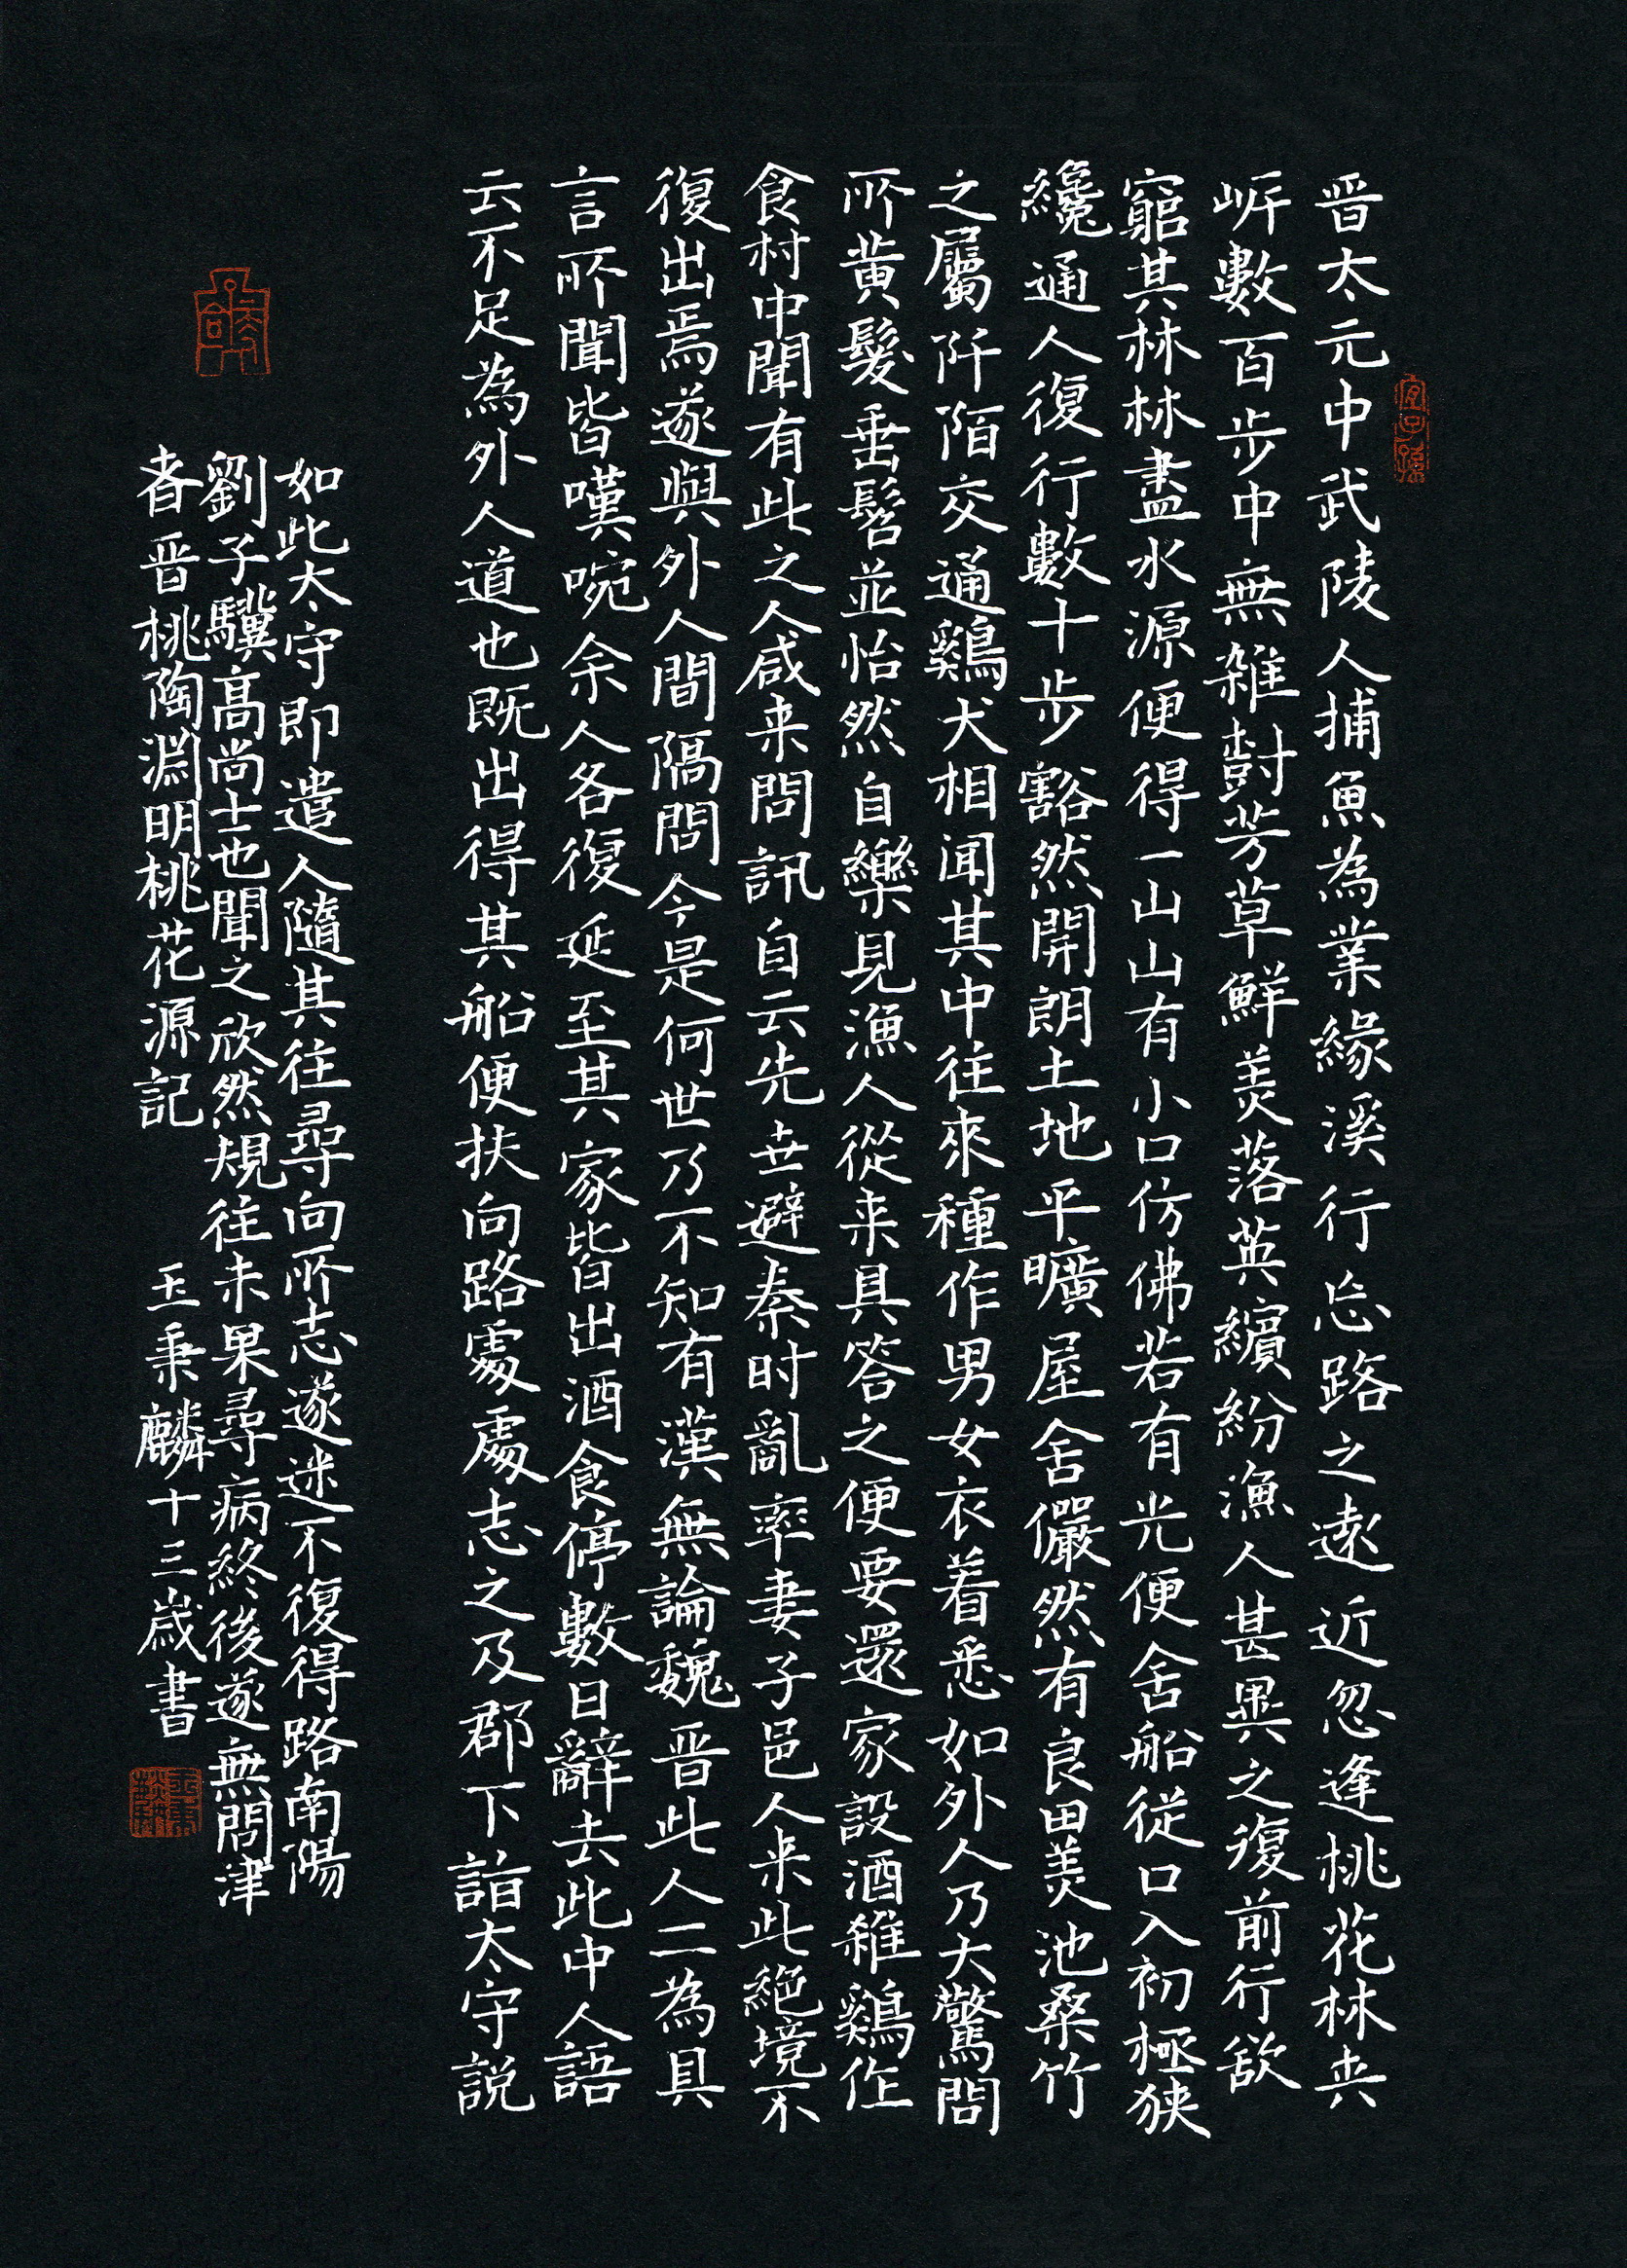 晋太元中武陵人捕魚為業緣溪行忘路之遠近忽逢桃花林夹
岍數百步中無雜樹芳草鮮羙落英繽紛漁人甚異之復前行欲
窮其林林盡水源便得一山山有小口仿佛若有光便舍船從口入初極狭
纔通人復行數十步豁然開朗土地平曠屋舍儼然有良田羙池桑竹
之屬阡陌交通鷄犬相闻其中往來種作男女衣着悉如外人乃大驚問
所黄髮垂髫並怡然自樂見漁人從来具答之便要還家設酒雞鷄作
食村中聞有此之人咸来問訊自云先世避秦时亂率妻子邑人来此絶境不
復出焉遂與外人間隔問今是何世乃不知有漢無論魏晋此人二為具
言所聞皆嘆唍余人各復延至其家皆出酒食停數日辭去此中人語
云不足為外人道也既出得其船便扶向路處處志之及郡下詣太守説
如此太守即遣人隨其往尋向所志遂迷不復得路南陽
劉子驥髙尚士也聞之欣然規往未果尋病終後遂無問津
者晋桃陶淵明桃花源記 王秉麟十三歲書
宜子孫
王秉麟